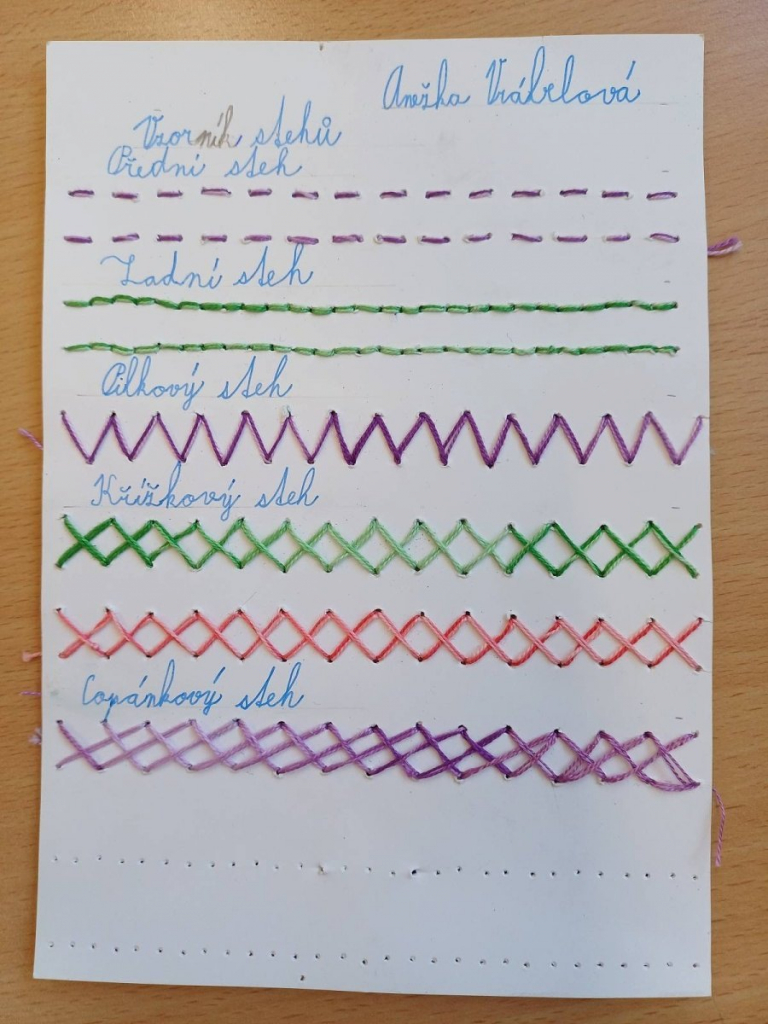 Anežka Vrábelová
Vzorník stehů
Přední steh
Zadní steh
Pilkový steh
Křížkový steh
Copánkový steh